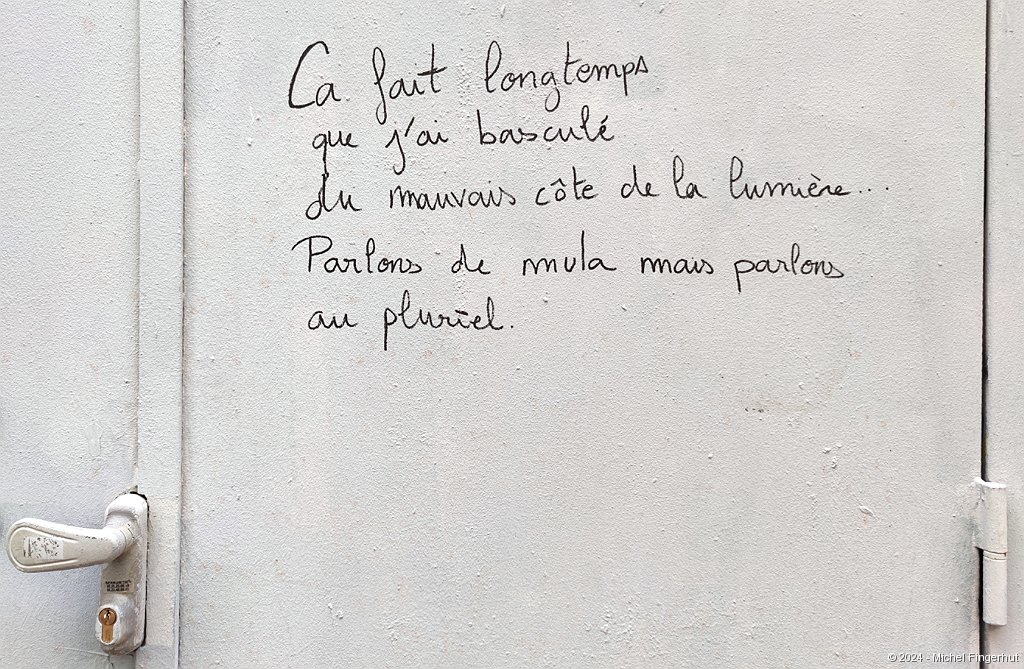 Ca fait longtemps
que j'ai basculé
du mauvais côte de la lumière...
Parlons de mula mais parlons
au pluriel.
© 2024 - Michel Fingerhut